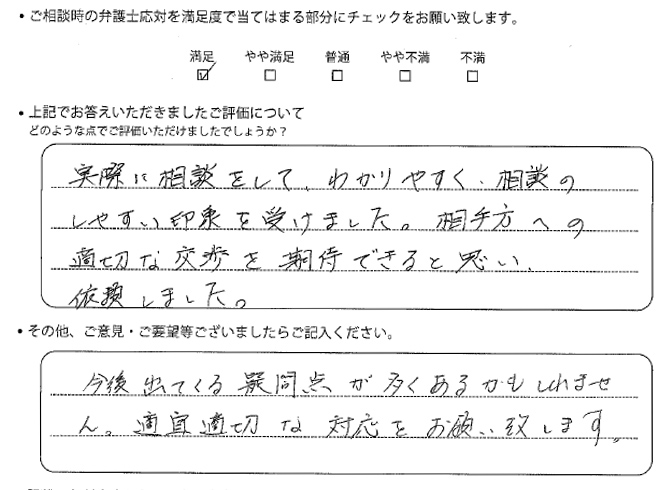 ・ご相談時の弁護士応対を満足度で当てはまる部分にチェックをお願い致します。
満足 やや満足 普通 やや不満 不満
☑ □ □ □ □
・上記でお答えいただきましたご評価について
どのような点でご評価いただけましたでしょうか?
実際に相談をして、わかりやすく、相談の
しやすい印象を受けました。相手方への
適切な交渉を期待できると思い、
依頼しました。
・その他、ご意見・ご要望等ございましたらご記入ください。
今後出てくる疑問点が多くあるかもしれませ
ん。適宜適切な対応をお願い致します。